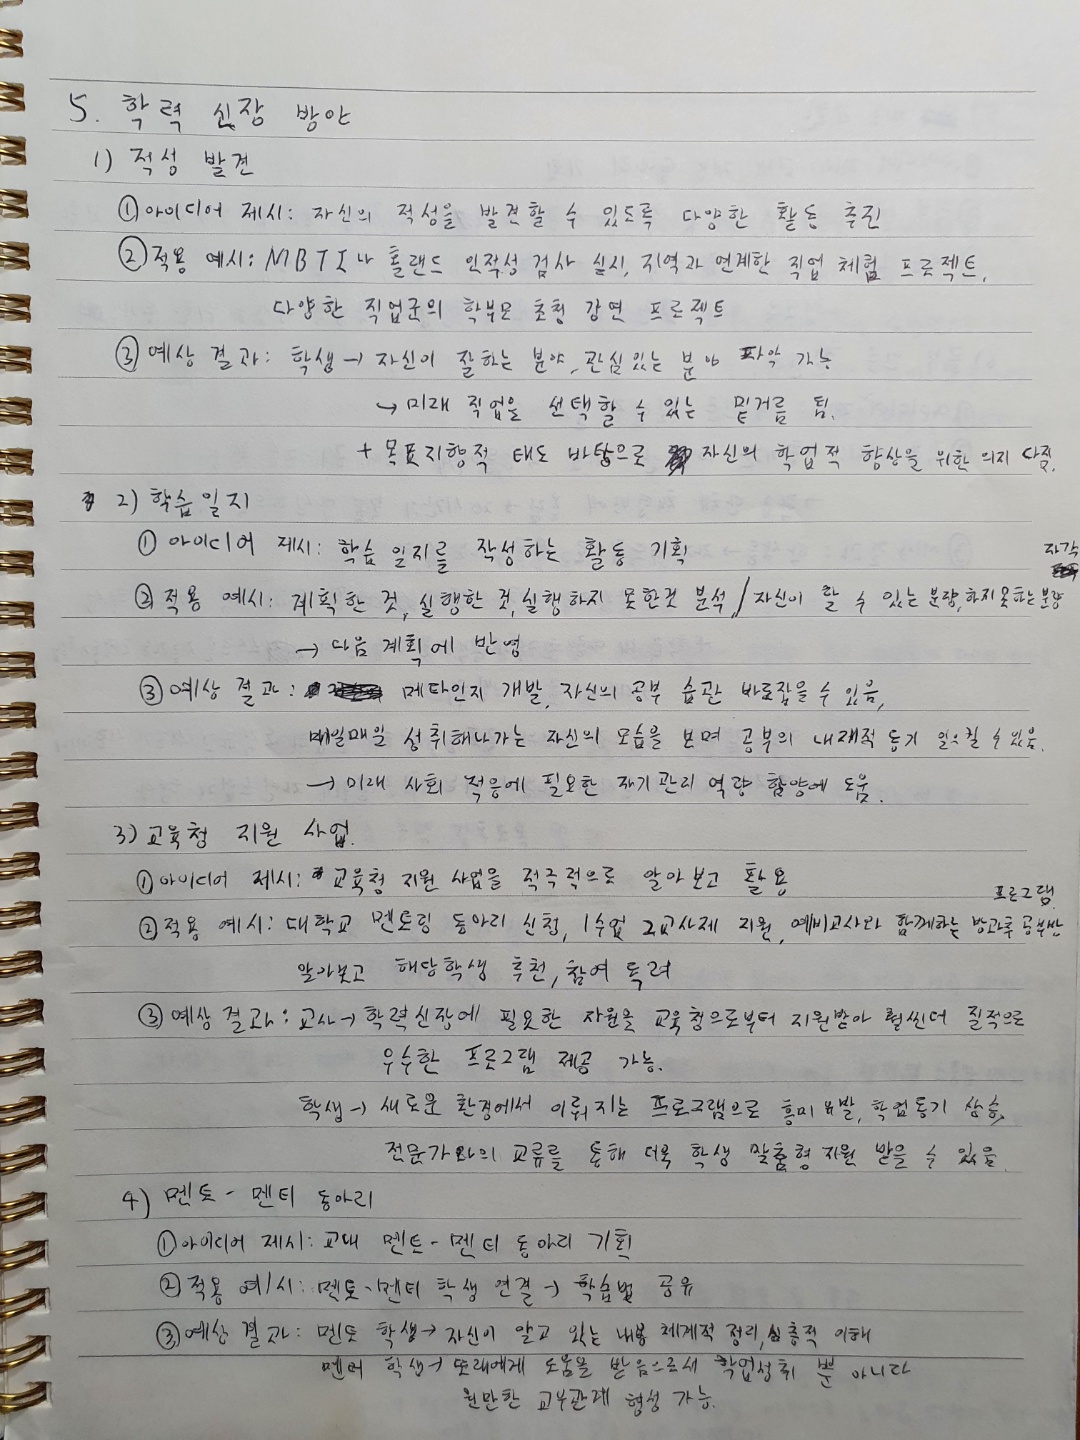 5. 학력 신장 방안
1) 적성 발견
① 아이디어 제시: 자신의 적성을 발견할 수 있도록 다양한 활동 추진
② 적용 예시: MBTI나 홀랜드 인적성 검사 실시, 지역과 연계한 직업 체험 프로젝트,
다양한 직업군의 학부모 초청 강연 프로젝트
③ 예상 결과: 학생 → 자신이 잘하는 분야, 관심있는 분야 파악 가능
→ 미래 직업을 선택할 수 있는 밑거름 됨.
+ 목표지향적 태도 바탕으로 자신의 학업적 향상을 위한 의지 다짐.
2) 학습일지
① 아이디어 제시: 학습 일지를 작성하는 활동 기획
자각
② 적용 예시: 계획한 것, 실행한 것, 실행하지 못한것 분석, / 자신이 할 수 있는 분량, 하지 못하는 분량
→ 다음 계획에 반영
③ 예상 결과: 메타인지 개발, 자신의 공부 습관 바로잡을 수 있음,
매일매일 성취해나가는 자신의 모습을 보며 공부의 내재적 동기 일으킬 수 있음.
→ 미래 사회 적응에 필요한 자기관리 역량 함양에 도움.
3) 교육청 지원 사업.
① 아이디어 제시: 교육청 지원 사업을 적극적으로 알아보고 활용
프로그램.
② 적용 예시: 대학교 멘토링 동아리 신청, 1수업 2교사제 지원, 예비교사와 함께하는 방과후 공부반
알아보고 해당학생 추천, 참여 독려
③ 예상 결과: 교사 → 학력신장에 필요한 자원을 교육청으로부터 지원받아 훨씬더 질적으로
우수한 프로그램 제공 가능.
학생 → 새로운 환경에서 이뤄지는 프로그램으로 흥미 유발, 학업동기 상승,
전문가와의 교류를 통해 더욱 학생 맞춤형 지원 받을 수 있음.
4) 멘토 - 멘티 동아리
① 아이디어 제시: 교내 멘토 - 멘티 동아리 기획
② 적용 예시: 멘토-멘티 학생 연결 → 학습법 공유
③ 예상 결과: 멘토 학생 → 자신이 알고 있는 내용 체계적 정리, 심층적 이해
멘티 학생 → 또래에게 도움을 받음으로서 학업성취 뿐 아니라
원만한 교우관계 형성 가능.